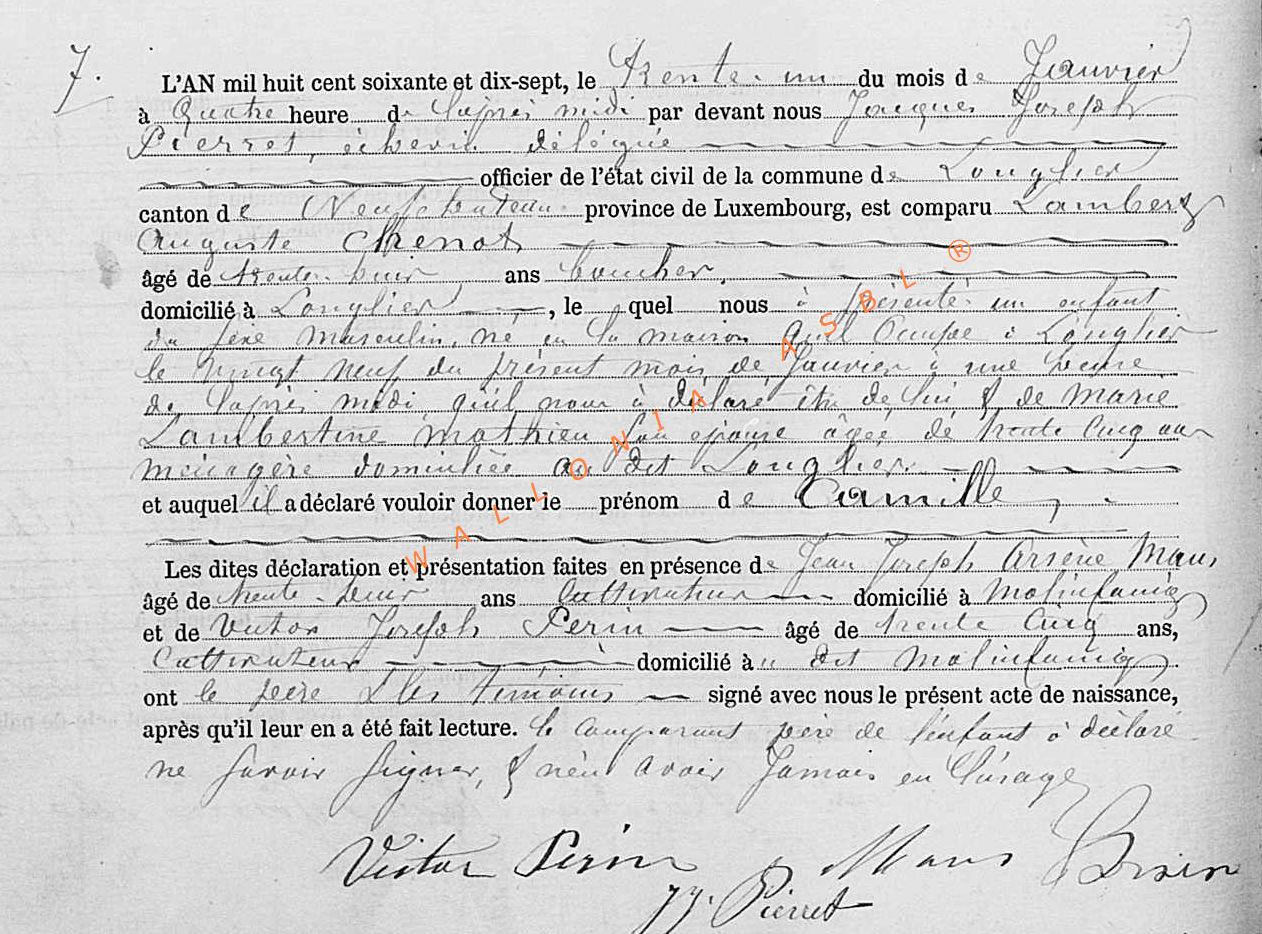 7.
L'AN mil huit cent soixante et dix-sept, le trente-un du mois de Janvier
à quatre heure de l'après midi par devant nous Jacques Joseph
Pierret, échevin délégué
officier de l'état civil de la commune de Longlier
canton de Neufchateau province de Luxembourg, est comparu Lambert
Auguste Chenot
âgé de trente huit ans boucher,
domicilié à Longlier, le quel nous à présenté un enfant
du sexe masculin, né en la maison qu'il occupe à Longlier
le vingt neuf du présent mois de Janvier à une heure
de l'après midi, qu'il nous à déclaré être de lui & de Marie
Lambertine Mathieu son épouse âgée de trente cinq ans
ménagère domiciliée au dit Longlier.
et auquel il a déclaré vouloir donner le prénom de Camille,
Les dites déclaration et présentation faites en présence de Jean Joseph Arsène Maus
âgé de trente-deux ans cultivateur domicilié à Molinfaing
et de Victor Joseph Perin âgé de trente cinq ans,
cultivateur domicilié à u dit Molinfaing
ont le père & les témoins signé avec nous le présent acte de naissance,
après qu'il leur en a été fait lecture. le comparant père de l'enfant à déclaré
ne savoir signer, & n'en avoir jamais eu l'usage
Victor Perin Maus
JJ. Pierret
WALLONIA ASBL ®